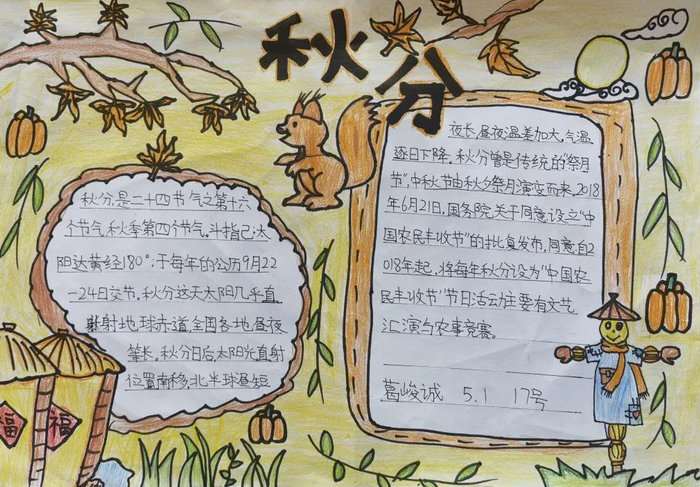 秋分
秋分,是二十四节气之第十六
个节气,秋季第四个节气。斗指己;太
阳达黄经180°;于每年的公历9月22
-24日交节。秋分这天太阳几乎直
射地球赤道,全国各地昼夜
等长。秋分日后,太阳光直射
位置南移,北半球昼短
夜长,昼夜温差加大,气温
逐日下降。秋分曾是传统的"祭月
节",中秋节由秋夕祭月演变而来。2018
年6月21日,国务院关于同意设立"中
国农民丰收节"的批复发布,同意自2
018年起,将每年秋分设为"中国农
民丰收节"节日活动主要有文艺
汇演与农事竞赛。
葛峻诚 5.1 17号
福
福